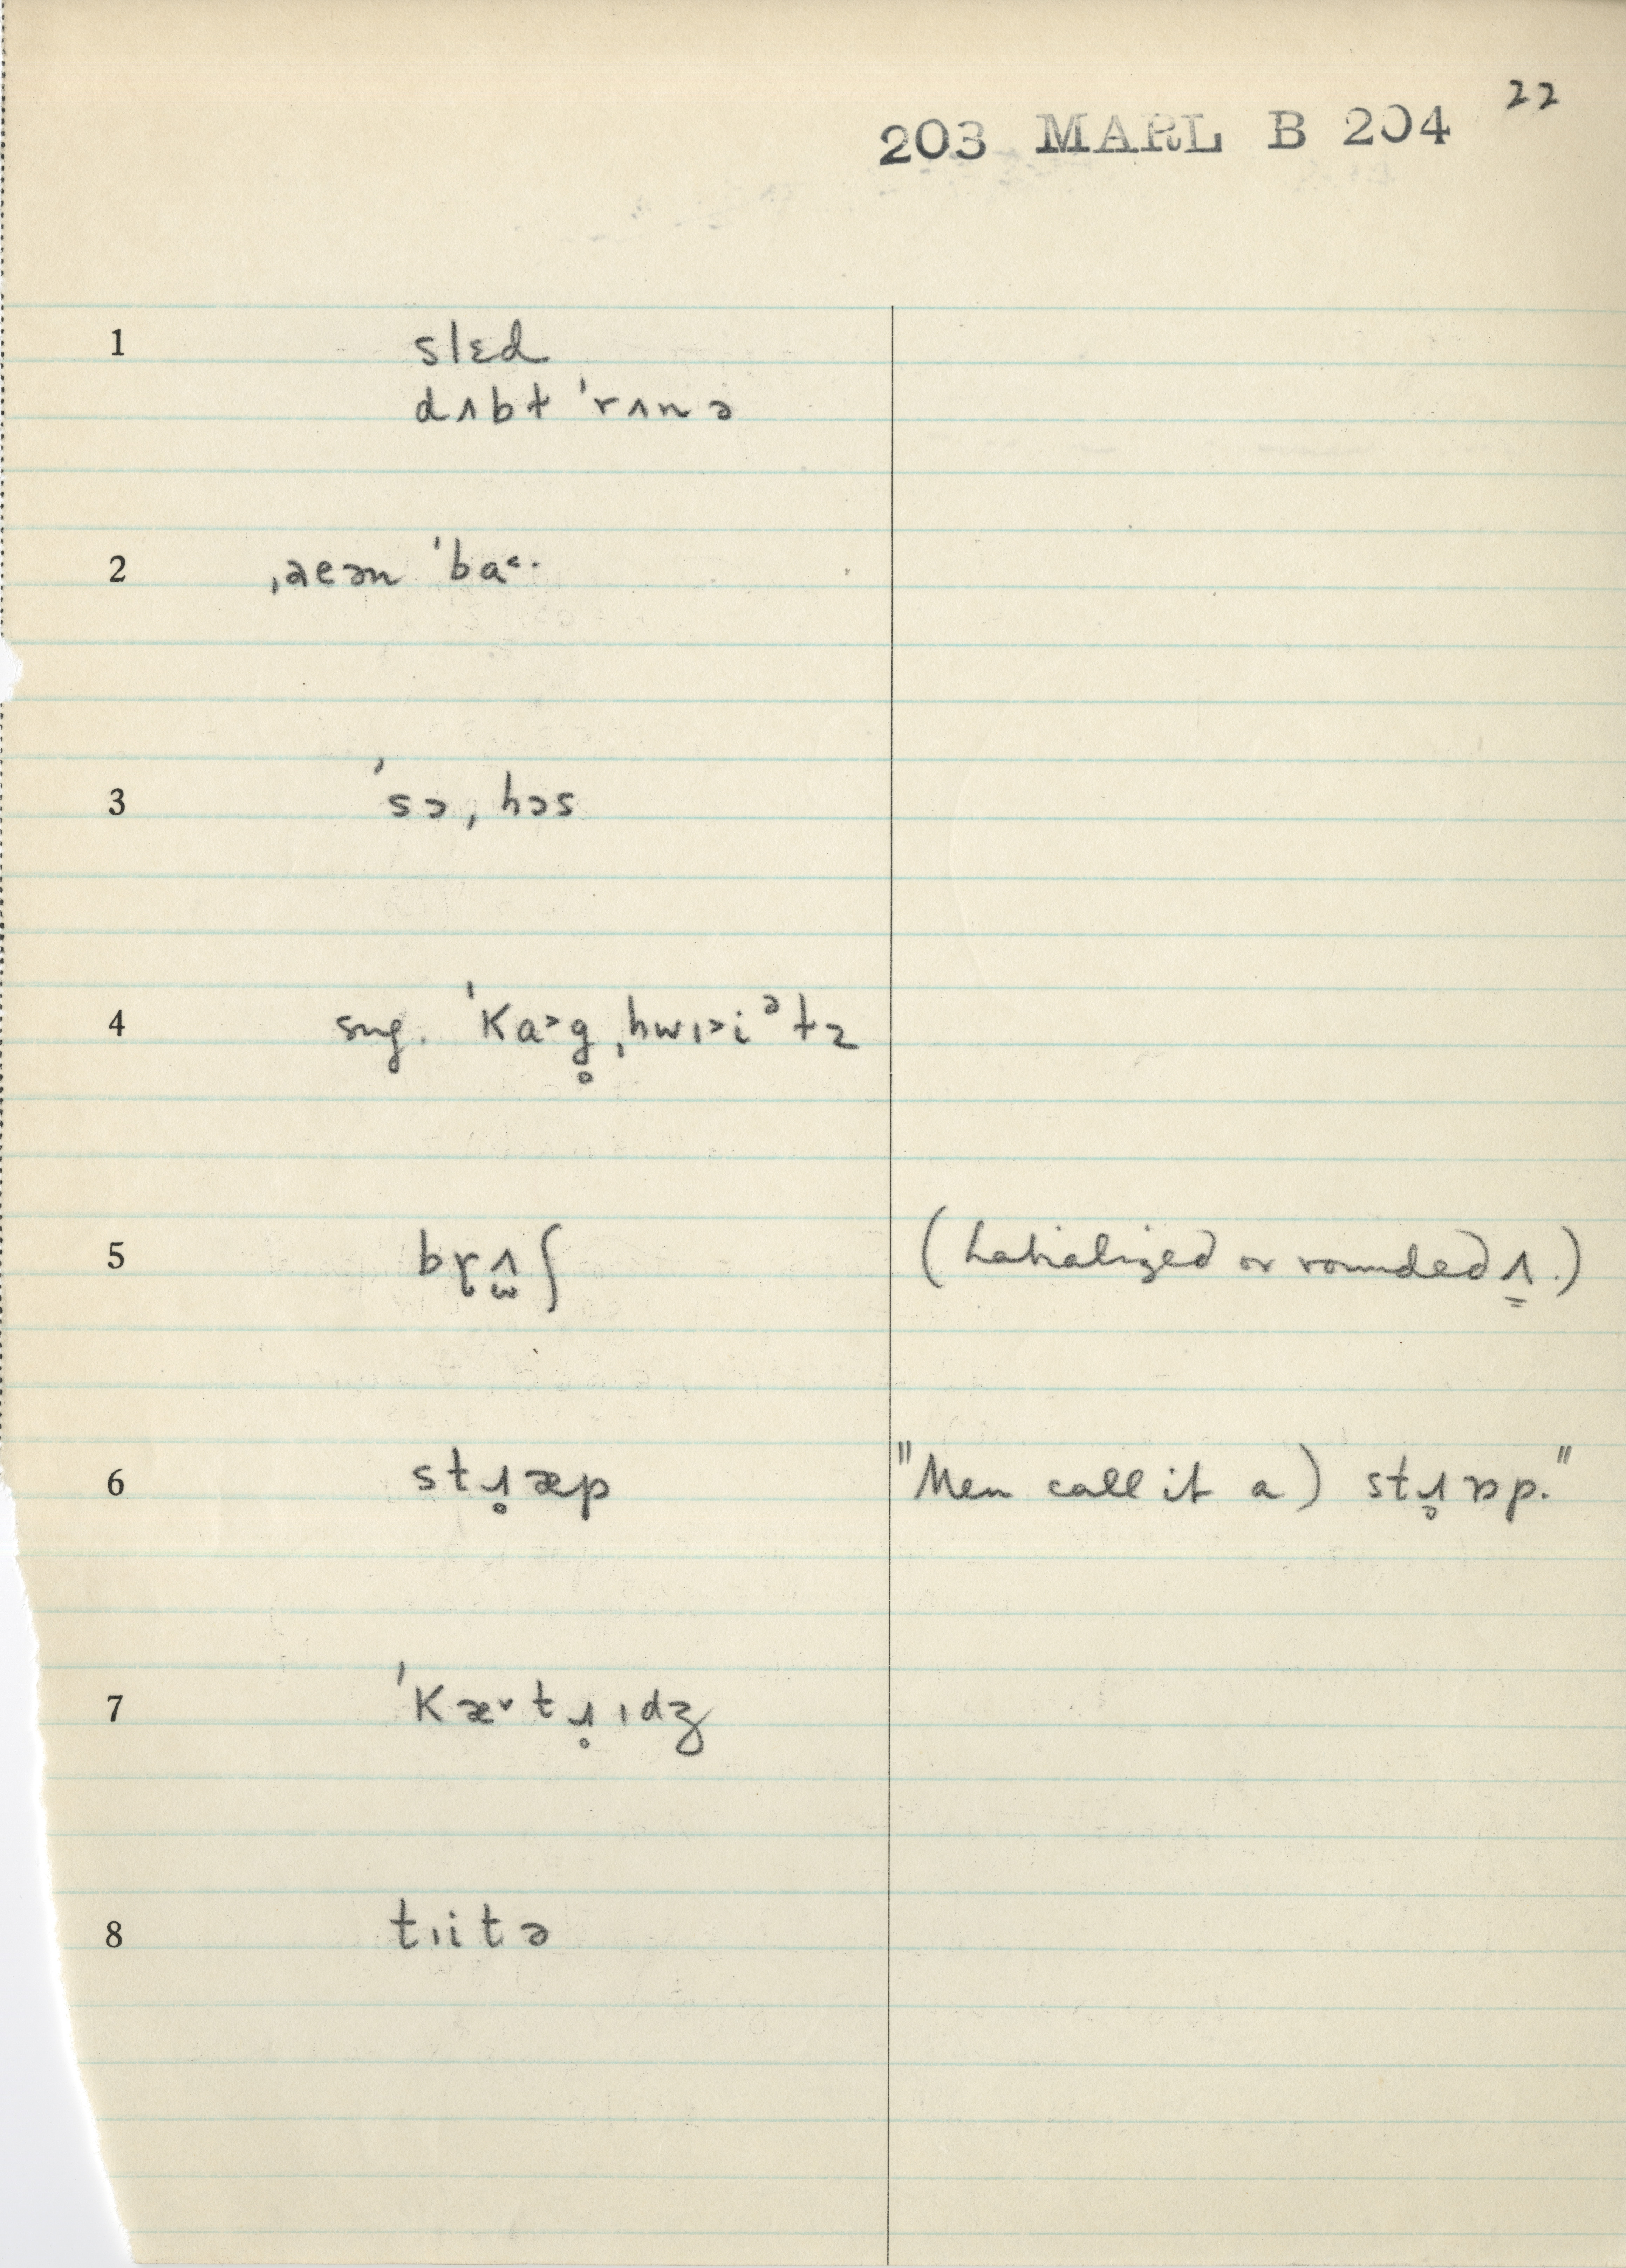 22
203 MARL B 204
1 slɛd
dʌbɫ ˈrʌnə
2 ˌaeən ˈba˂·
3 ˈsɔˌhɔs
4 sug. ˈKa˃g̥ˌhwɪ˃iᵊtz
5 brʌ̫ʃ (Labialized or rounded ʌ.)
6 stɹ̥æp "Men call it a) stɹ̥ɒp."
7 ˈKæ˅tɹ̥ɪdʒ
8 tɪitə